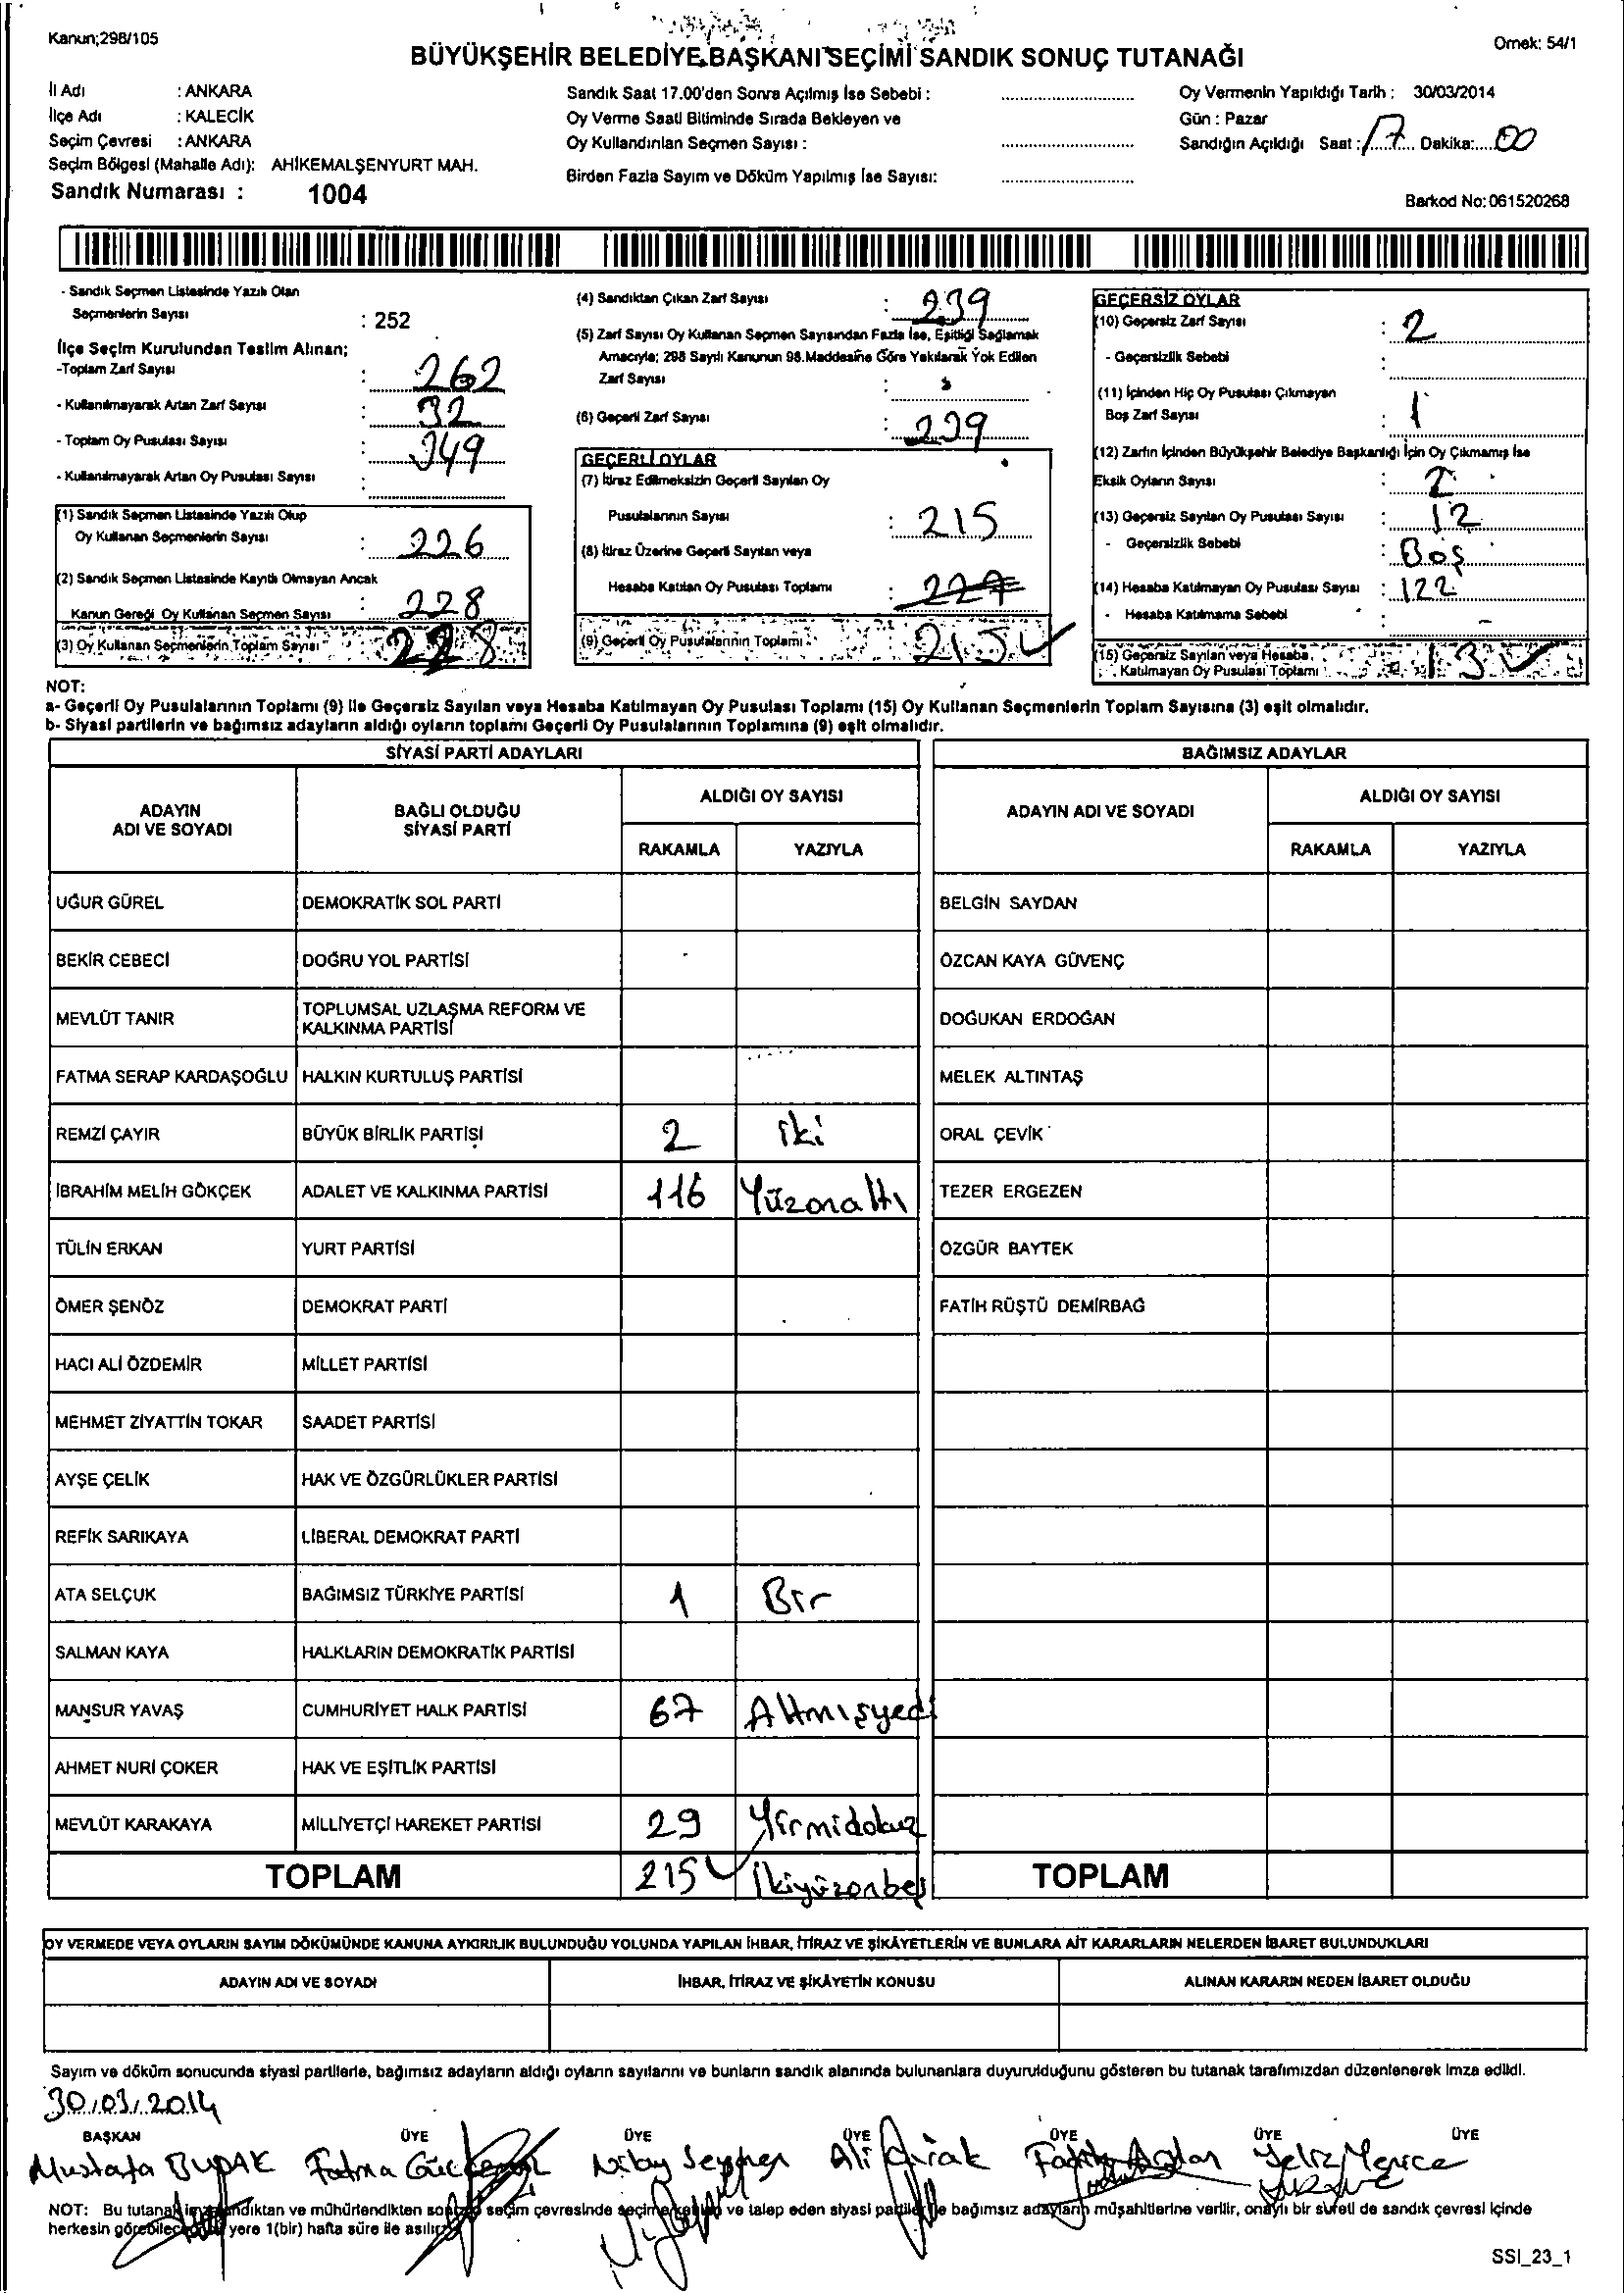 Kanun;298/105
BÜYÜKŞEHİR BELEDİYE BAŞKANI SEÇİMİ SANDIK SONUÇ TUTANAĞI
Örnek: 54/1
İl Adı : ANKARA
İlçe Adı : KALECİK
Seçim Çevresi : ANKARA
Seçim Bölgesi (Mahalle Adı): AHİKEMALŞENYURT MAH.
Sandık Numarası : 1004
Sandık Saat 17.00'den Sonra Açılmış İse Sebebi :
Oy Verme Saati Bitiminde Sırada Bekleyen ve
Oy Kullandırılan Seçmen Sayısı :
Birden Fazla Sayım ve Döküm Yapılmış İse Sayısı:
Oy Vermenin Yapıldığı Tarih : 30/03/2014
Gün : Pazar
Sandığın Açıldığı Saat : 17 Dakika: 00
Barkod No: 061520268
- Sandık Seçmen Listesinde Yazılı Olan
Seçmenlerin Sayısı : 252
İlçe Seçim Kurulundan Teslim Alınan;
-Toplam Zarf Sayısı : 262
- Kullanılmayarak Artan Zarf Sayısı : 32
- Toplam Oy Pusulası Sayısı : 349
- Kullanılmayarak Artan Oy Pusulası Sayısı
(1) Sandık Seçmen Listesinde Yazılı Olup
Oy Kullanan Seçmenlerin Sayısı : 226
(2) Sandık Seçmen Listesinde Kayıtlı Olmayan Ancak
Kanun Gereği Oy Kullanan Seçmen Sayısı : 228
(3) Oy Kullanan Seçmenlerin Toplam Sayısı 228
(4) Sandıktan Çıkan Zarf Sayısı : 239
(5) Zarf Sayısı Oy Kullanan Seçmen Sayısından Fazla İse, Eşitliği Sağlamak
Amacıyla; 298 Sayılı Kanunun 98.Maddesine Göre Yakılarak Yok Edilen
Zarf Sayısı :
(6) Geçerli Zarf Sayısı : 239
GEÇERLİ OYLAR
(7) İtiraz Edilmeksizin Geçerli Sayılan Oy
Pusulalarının Sayısı : 215
(8) İtiraz Üzerine Geçerli Sayılan veya
Hesaba Katılan Oy Pusulası Toplamı : 227
(9) Geçerli Oy Pusulalarının Toplamı : 215
GEÇERSİZ OYLAR
(10) Geçersiz Zarf Sayısı : 2
- Geçersizlik Sebebi :
(11) İçinden Hiç Oy Pusulası Çıkmayan
Boş Zarf Sayısı : 1
(12) Zarfın İçinden Büyükşehir Belediye Başkanlığı İçin Oy Çıkmamış İse
Eksik Oyların Sayısı :
(13) Geçersiz Sayılan Oy Pusulası Sayısı : 12
- Geçersizlik Sebebi : Boş
(14) Hesaba Katılmayan Oy Pusulası Sayısı : 122
- Hesaba Katılmama Sebebi
(15) Geçersiz Sayılan veya Hesaba
Katılmayan Oy Pusulası Toplamı : 13
NOT:
a- Geçerli Oy Pusulalarının Toplamı (9) ile Geçersiz Sayılan veya Hesaba Katılmayan Oy Pusulası Toplamı (15) Oy Kullanan Seçmenlerin Toplam Sayısına (3) eşit olmalıdır.
b- Siyasi partilerin ve bağımsız adayların aldığı oyların toplamı Geçerli Oy Pusulalarının Toplamına (9) eşit olmalıdır.
SİYASİ PARTİ ADAYLARI
BAĞIMSIZ ADAYLAR
ADAYIN ADI VE SOYADI
BAĞLI OLDUĞU SİYASİ PARTİ
ALDIĞI OY SAYISI
RAKAMLA YAZIYLA
ADAYIN ADI VE SOYADI
ALDIĞI OY SAYISI
RAKAMLA YAZIYLA
UĞUR GÜREL DEMOKRATİK SOL PARTİ BELGİN SAYDAN
BEKİR CEBECİ DOĞRU YOL PARTİSİ ÖZCAN KAYA GÜVENÇ
MEVLÜT TANIR TOPLUMSAL UZLAŞMA REFORM VE KALKINMA PARTİSİ DOĞUKAN ERDOĞAN
FATMA SERAP KARDAŞOĞLU HALKIN KURTULUŞ PARTİSİ MELEK ALTINTAŞ
REMZİ ÇAYIR BÜYÜK BİRLİK PARTİSİ 2 iki ORAL ÇEVİK
İBRAHİM MELİH GÖKÇEK ADALET VE KALKINMA PARTİSİ 116 Yüzonaltı TEZER ERGEZEN
TÜLİN ERKAN YURT PARTİSİ ÖZGÜR BAYTEK
ÖMER ŞENÖZ DEMOKRAT PARTİ FATİH RÜŞTÜ DEMİRBAĞ
HACI ALİ ÖZDEMİR MİLLET PARTİSİ
MEHMET ZİYATTİN TOKAR SAADET PARTİSİ
AYŞE ÇELİK HAK VE ÖZGÜRLÜKLER PARTİSİ
REFİK SARIKAYA LİBERAL DEMOKRAT PARTİ
ATA SELÇUK BAĞIMSIZ TÜRKİYE PARTİSİ 1 Bir
SALMAN KAYA HALKLARIN DEMOKRATİK PARTİSİ
MANSUR YAVAŞ CUMHURİYET HALK PARTİSİ 67 Altmışyedi
AHMET NURİ ÇOKER HAK VE EŞİTLİK PARTİSİ
MEVLÜT KARAKAYA MİLLİYETÇİ HAREKET PARTİSİ 29 Yirmidokuz
TOPLAM 215 İkiyüzonbeş TOPLAM
OY VERMEDE VEYA OYLARIN SAYIM DÖKÜMÜNDE KANUNA AYKIRILIK BULUNDUĞU YOLUNDA YAPILAN İHBAR, İTİRAZ VE ŞİKÂYETLERİN VE BUNLARA AİT KARARLARIN NELERDEN İBARET BULUNDUKLARI
ADAYIN ADI VE SOYADI İHBAR, İTİRAZ VE ŞİKÂYETİN KONUSU ALINAN KARARIN NEDEN İBARET OLDUĞU
Sayım ve döküm sonucunda siyasi partilerle, bağımsız adayların aldığı oyların sayılarını ve bunların sandık alanında bulunanlara duyurulduğunu gösteren bu tutanak tarafımızdan düzenlenerek imza edildi.
30.03.2014
BAŞKAN ÜYE ÜYE ÜYE ÜYE ÜYE ÜYE
Mustafa BUDAK Fatma Ali Yeliz
NOT: Bu tutanak imzalandıktan ve mühürlendikten sonra o seçim çevresinde seçime katılan ve talep eden siyasi partiler ile bağımsız adayların müşahitlerine verilir, onaylı bir sureti de sandık çevresi içinde
herkesin görebileceği bir yere 1(bir) hafta süre ile asılır.
SSI_23_1